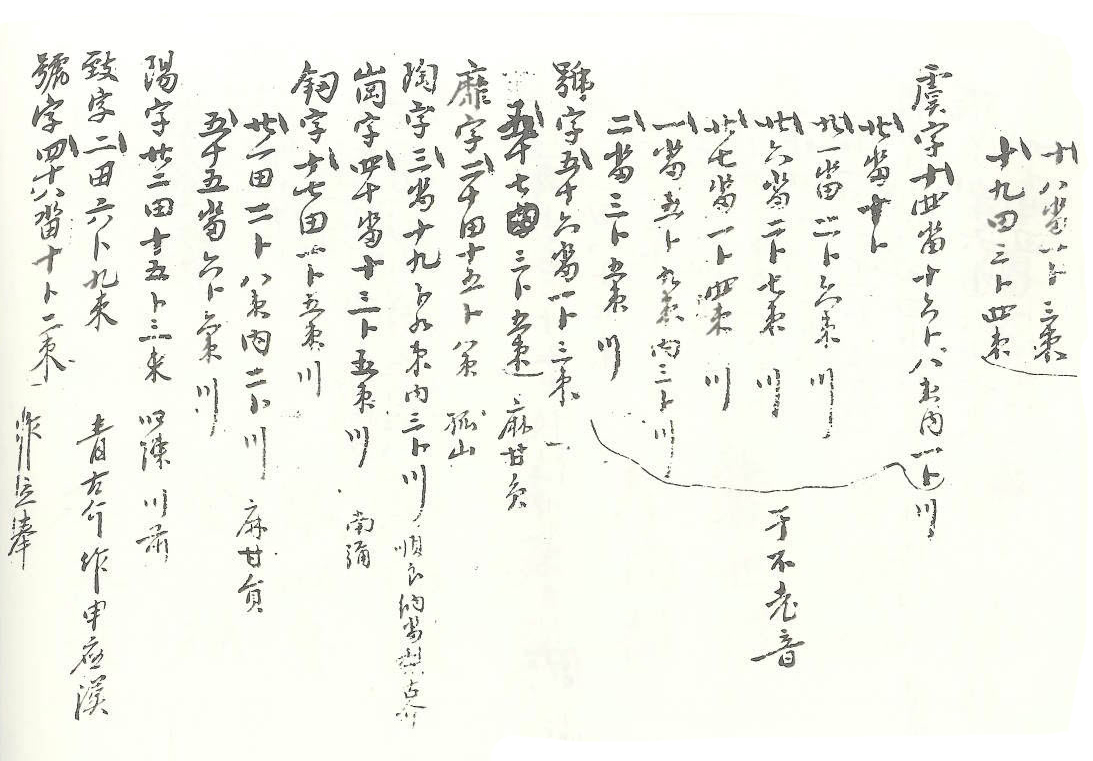 十八畓一卜三束
十九田三卜四束
虞字十四畓十六卜八束內一卜川
卄畓十卜
卄一畓二卜六束 川
卄六畓二卜七束 川
卄七畓一卜四束 川
一畓五卜九束內三卜川
二畓三卜五束 川
于不老音
號字五十六畓一卜三束
五十七田三卜五束 麻甘負
靡字二十田十五卜八束 孤山
陶字三畓十九卜九束內三卜川 順良
崗字四十畓十三卜五束川 南彌
釰字十七田一卜五束川
卄一田二卜八束內二卜川 麻甘負
五十五畓六卜六束川
陽字卄二田十五卜三束 川
致字二田六卜九束 青古介 作申應漢
號字四十八畓十卜二束 奉